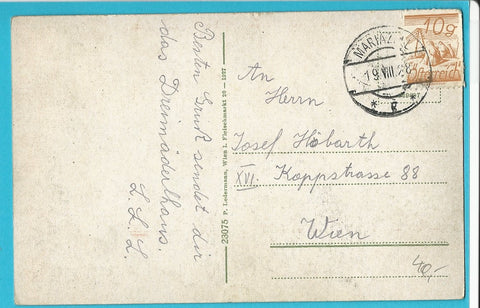 Besten Gruß sendet dir
das Dreimäderlhaus.
L. L. L.
23075 P. Ledermann, Wien I. Fleischmarkt 20 — 1927
An
Herrn
Josef Höbarth
XVI. Koppstrasse 88
Wien
40,-
MARIAZELL
19. VIII. 28
* R
10g
Österreich